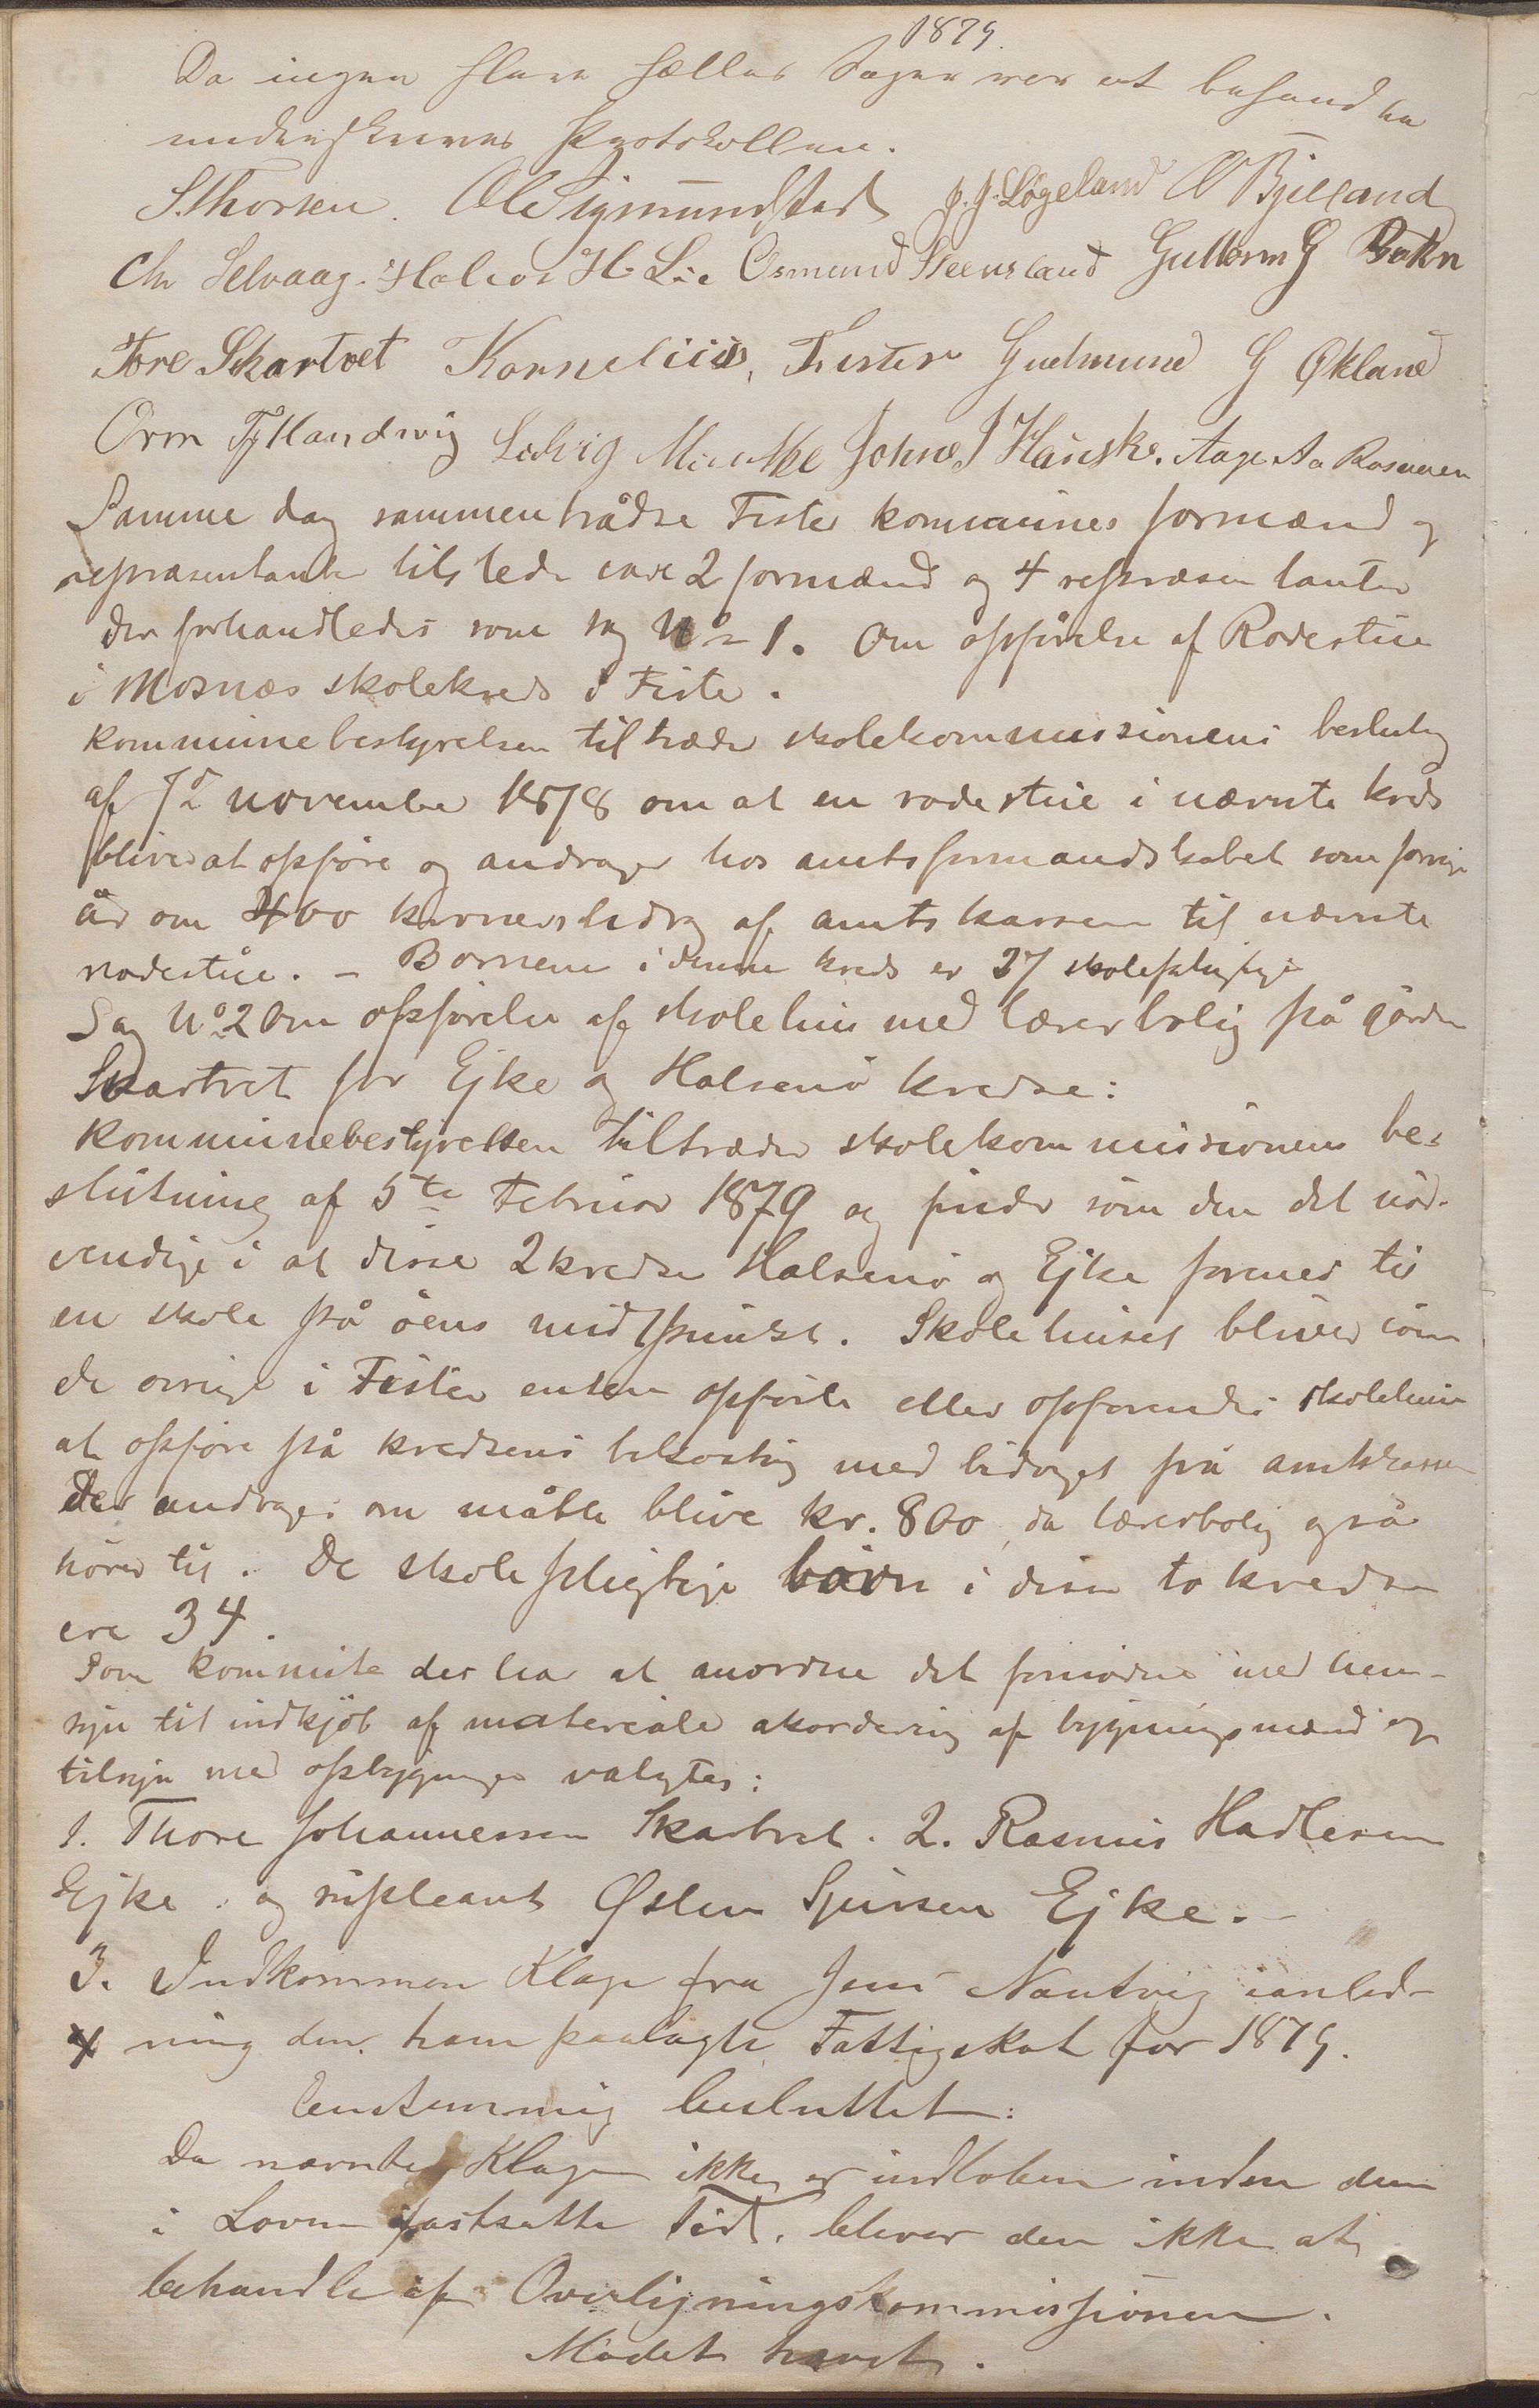 1879.
Da ingen flere fælles Sager var at behandle
underskreves Protokollen.
S. Thorsen. Ole Sigmundstad J. J. Løgeland O Bjelland
Chr Selvaag. Halvor H. Lie Osmund Steensland Guttorm G Bokn
Tore Skartvet Kornelius, Fister Gudmund G Økland
Orm Tytlandsvig Ludvig Johne J Hauske. Aage Aa Rosnnen
Samme dag sammentrådte Fister kommunes formænd og
repræsentanter tilstede vare 2 formænd og 4 repræsentanter
der forhandledes som sag No 1. Om opførelse af Rodestue
i Mosnæs skolekreds i Fister.
kommunebestyrelsen tiltræder skolekommissionens beslutng
af 7d november 1878 om at en rodestue i nævnte kreds
bliver at opføre og andrager hos amtsformandskabet som forrige
år om 400 kroners bidrag af amtskassen til nævnte
rodestue. - Børnene i denne kreds er 27 skolepligtige
Sag No 2 Om opførelse af skolehus med lærerbolig på gården
Skartvet for Ejke og Halsenø kredse:
kommunebestyrelsen tiltræder skolekommissionens be-
slutning af 5te Februar 1879 og finder som den det nød-
vendige i at disse 2 kredse Halsenø og Ejke forenes til
en skole på øens midtpunkt. Skolehuset bliver som
de øvrige i Fister enten opførte eller opførendes skolehuse
at opføre på kredsens bekostng med bidraget fra amtskassen
der andrages om måtte blive kr. 800, da lærerbolig også
hører til. De skolepligtige børn i disse to kredse
ere 34.
Som kommite der har at anordne det fornødne med hen-
syn til indkjöb af materiale akordering af bygningsmænd og
tilsyn med opbygningen valgtes:
1. Thore Johannessen Skartvet. 2. Rasmus Hadlesen
Ejke. og supleant Østen Sjursen Ejke. -
3. Indkommen Klage fra Jens Nautvig ianled-
x ning den ham paalagte Fattigskat for 1879.
Eenstemmig besluttet:
Da nævnte Klage ikke er indkommen inden den
i Loven fastsatte Tid, bliver den ikke at
behandle af Overligningskommissionen.
Mødet hævet.